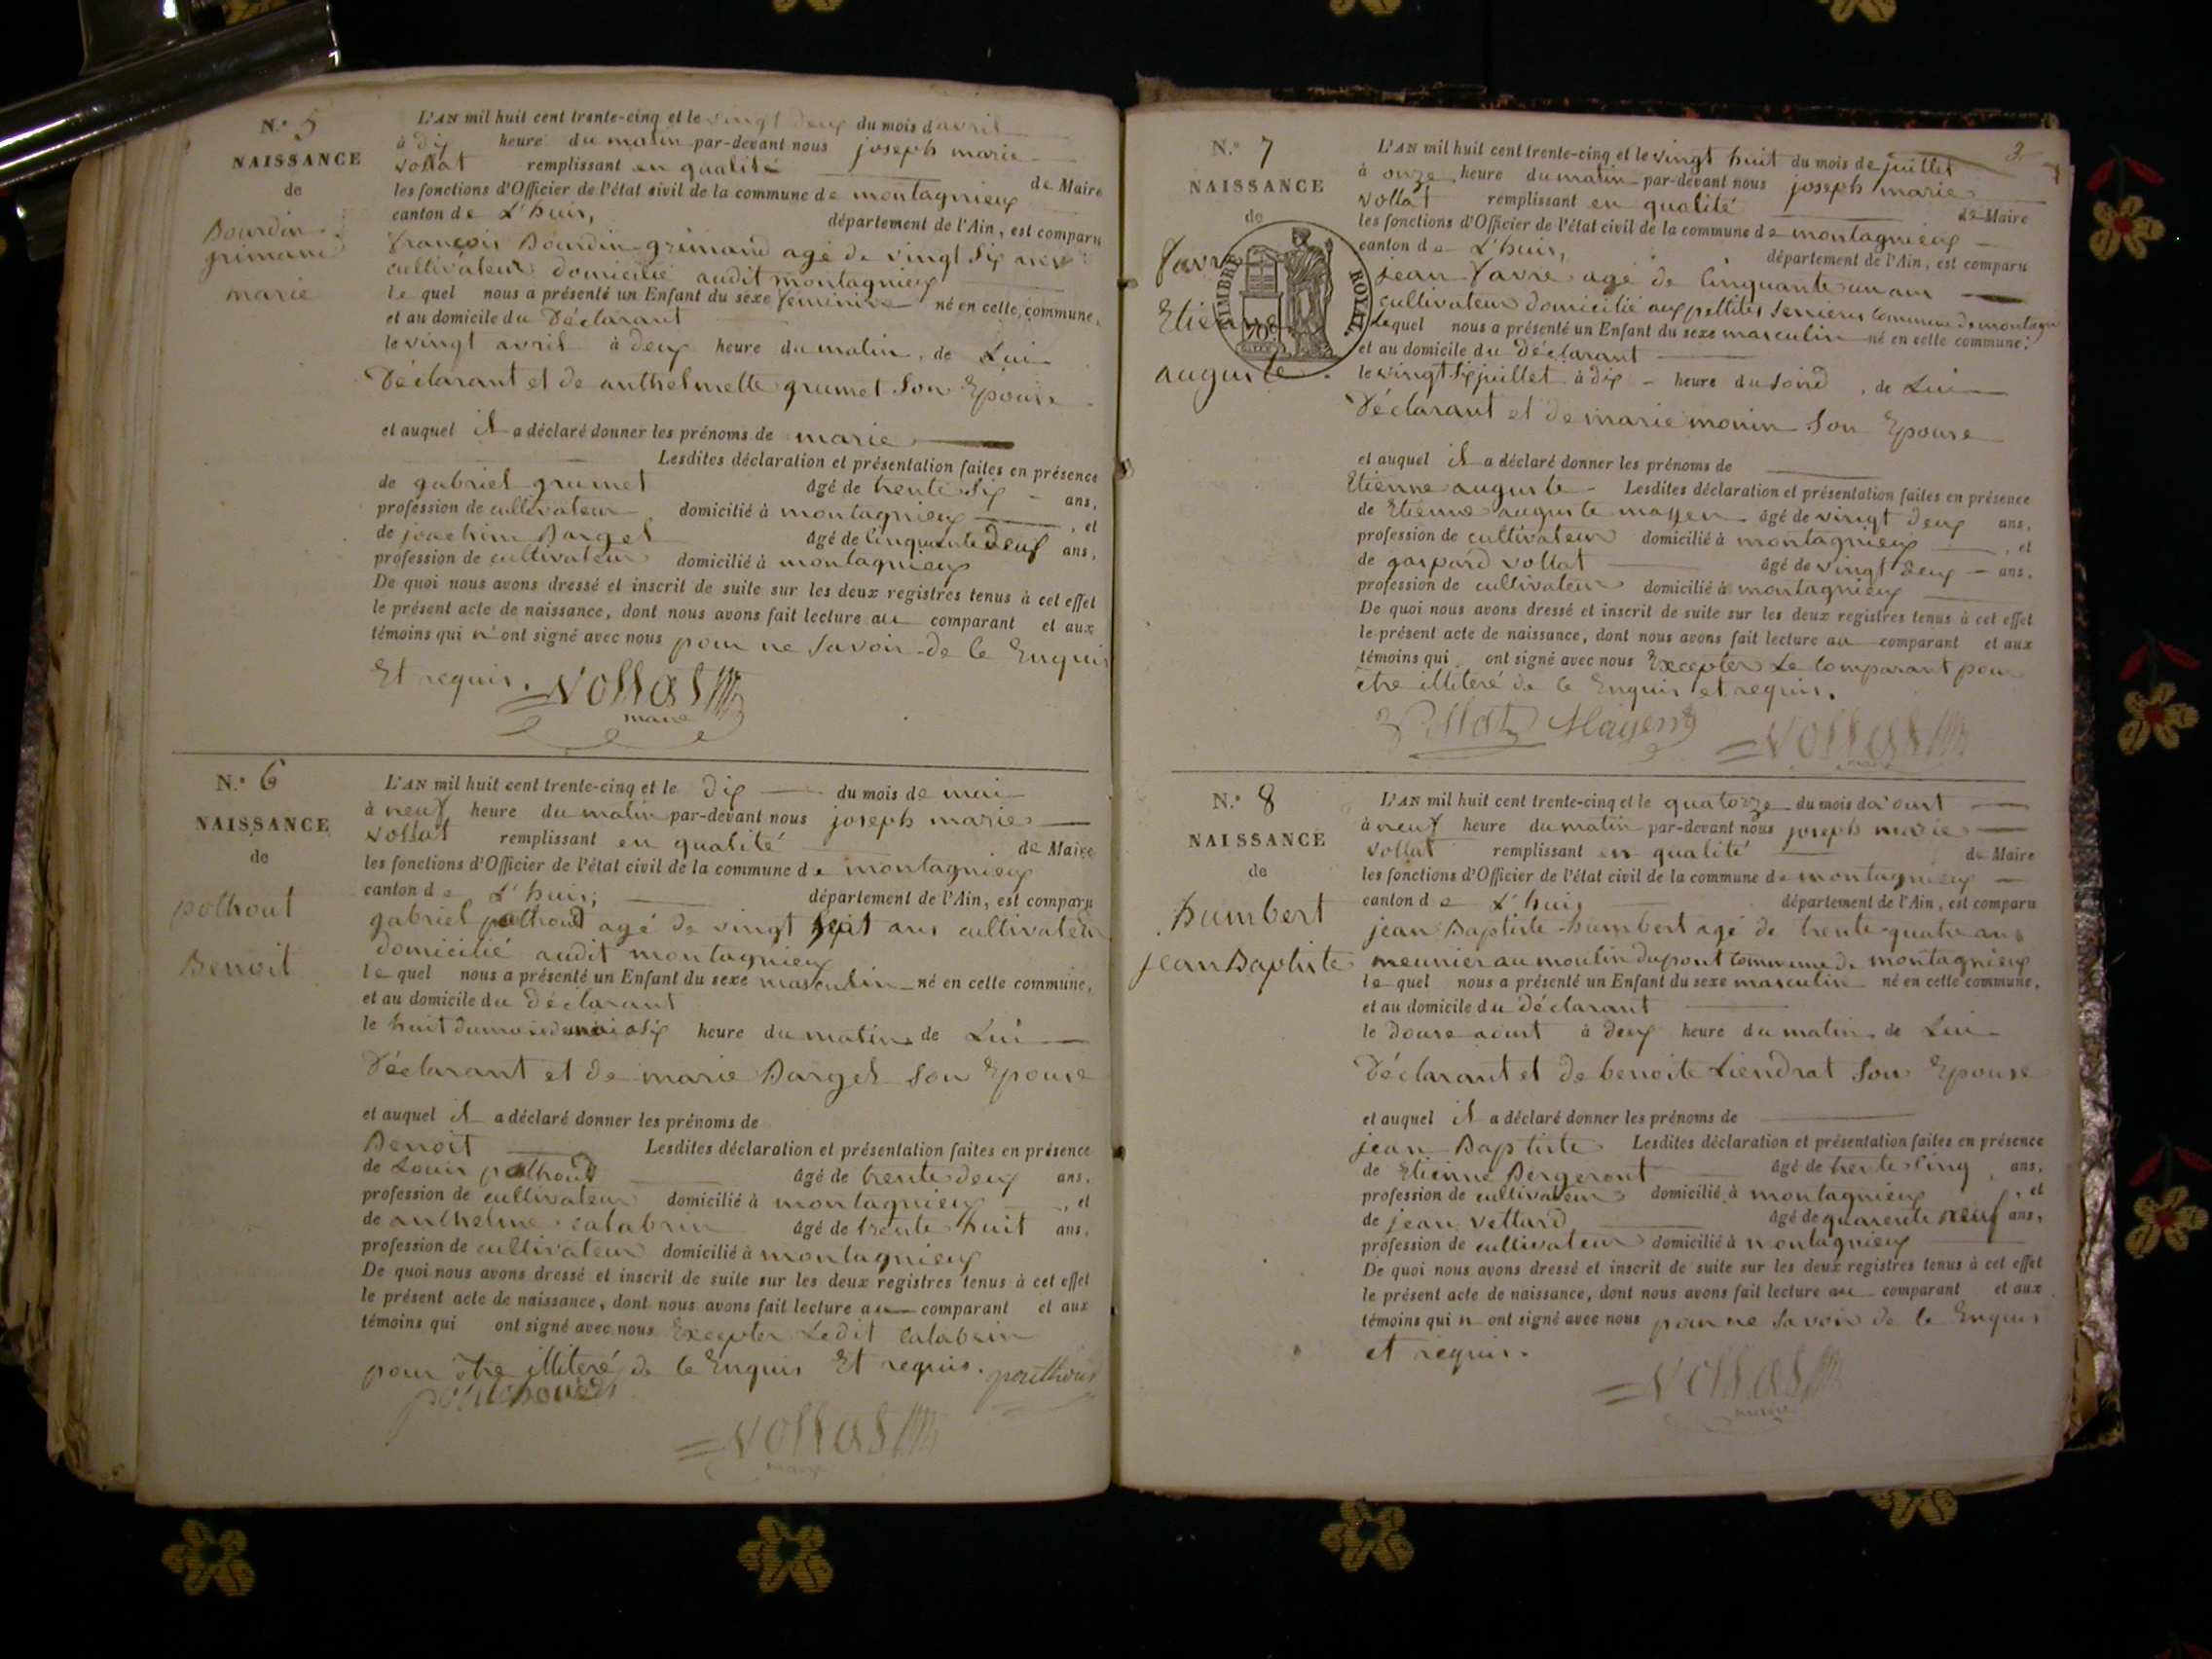 N.° 5
NAISSANCE
de
Bourdin
grimand
marie
L'AN mil huit cent trente-cinq et le vingt deux du mois d avril
à dix heure du matin par-devant nous joseph marie
vollat remplissant en qualité de Maire
les fonctions d'Officier de l'état civil de la commune de montagnieux
canton de L'huis, département de l'Ain, est comparu
françois Bourdin grimand agé de vingt six ans
cultivateur domicilié audit montagnieux
le quel nous a présenté un Enfant du sexe feminin né en cette commune,
et au domicile du Déclarant
le vingt avril à deux heure du matin, de Lui
Déclarant et de anthelmette grumet Son Epouse
et auquel il a déclaré donner les prénoms de marie
Lesdites déclaration et présentation faites en présence
de gabriel grumet âgé de trente six ans,
profession de cultivateur domicilié à montagnieux, et
de joachim Barget âgé de cinquante deux ans,
profession de cultivateur domicilié à montagnieux
De quoi nous avons dressé et inscrit de suite sur les deux registres tenus à cet effet
le présent acte de naissance, dont nous avons fait lecture au comparant et aux
témoins qui n'ont signé avec nous pour ne savoir de ce Enquis
Et requis. Vollat
maire
N.° 6
NAISSANCE
de
polhout
Benoit
L'AN mil huit cent trente-cinq et le dix du mois de mai
à neuf heure du matin par-devant nous joseph marie
vollat remplissant en qualité de Maire
les fonctions d'Officier de l'état civil de la commune de montagnieux
canton de L'huis, département de l'Ain, est comparu
gabriel polhout agé de vingt huit ans cultivateur
domicilié audit montagnieux
le quel nous a présenté un Enfant du sexe masculin né en cette commune,
et au domicile du déclarant
le huit du mois de mai a six heure du matin de Lui
Déclarant et de marie Barget Son Epouse
et auquel il a déclaré donner les prénoms de
Benoit Lesdites déclaration et présentation faites en présence
de Louis polhoud âgé de trente deux ans,
profession de cultivateur domicilié à montagnieux, et
de anthelme calabrin âgé de trente huit ans,
profession de cultivateur domicilié à montagnieux
De quoi nous avons dressé et inscrit de suite sur les deux registres tenus à cet effet
le présent acte de naissance, dont nous avons fait lecture au comparant et aux
témoins qui ont signé avec nous Excepter Ledit Calabrin
pour être illiteré de ce Enquis Et requis.
Vollat
3
N.° 7
NAISSANCE
de
favre
Etienne
auguste
TIMBRE ROYAL
L'AN mil huit cent trente-cinq et le vingt huit du mois de juillet
à onze heure du matin par-devant nous joseph marie
vollat remplissant en qualité de Maire
les fonctions d'Officier de l'état civil de la commune de montagnieux
canton de L'huis, département de l'Ain, est comparu
jean favre agé de Cinquante un ans
cultivateur domicilié aux pettites Commune de montagn
Lequel nous a présenté un Enfant du sexe masculin né en cette commune,
et au domicile du déclarant
le vingt six juillet à dix heure du soird, de Lui
Déclarant et de marie monin Son Epouse
et auquel il a déclaré donner les prénoms de
Etienne auguste Lesdites déclaration et présentation faites en présence
de Etienne auguste mayen âgé de vingt deux ans,
profession de cultivateur domicilié à montagnieux, et
de gaspard vollat âgé de vingt deux ans,
profession de cultivateur domicilié à montagnieux
De quoi nous avons dressé et inscrit de suite sur les deux registres tenus à cet effet
le présent acte de naissance, dont nous avons fait lecture au comparant et aux
témoins qui ont signé avec nous Excepter Le Comparant pour
etre illiteré de ce Enquis et requis.
Vollat Mayen Vollat
N.° 8
NAISSANCE
de
humbert
jean Baptiste
L'AN mil huit cent trente-cinq et le quatorze du mois d a'oust
à neuf heure du matin par-devant nous joseph marie
vollat remplissant en qualité de Maire
les fonctions d'Officier de l'état civil de la commune de montagnieux
canton de L'huis département de l'Ain, est comparu
jean Baptiste humbert agé de trente quatre ans
meunier au moulin du pont Commune de montagnieux
le quel nous a présenté un Enfant du sexe masculin né en cette commune,
et au domicile du déclarant
le douse aoust à deux heure du matin, de Lui
Déclarant et de benoite Liendrat Son Epouse
et auquel il a déclaré donner les prénoms de
jean Baptiste Lesdites déclaration et présentation faites en présence
de Etienne Bergeront âgé de trente Cinq ans,
profession de cultivateur domicilié à montagnieux, et
de jean vettard âgé de quarente neuf ans,
profession de cultivateur domicilié à montagnieux
De quoi nous avons dressé et inscrit de suite sur les deux registres tenus à cet effet
le présent acte de naissance, dont nous avons fait lecture au comparant et aux
témoins qui n ont signé avec nous pour ne savoir de ce Enquis
et requis.
Vollat
maire